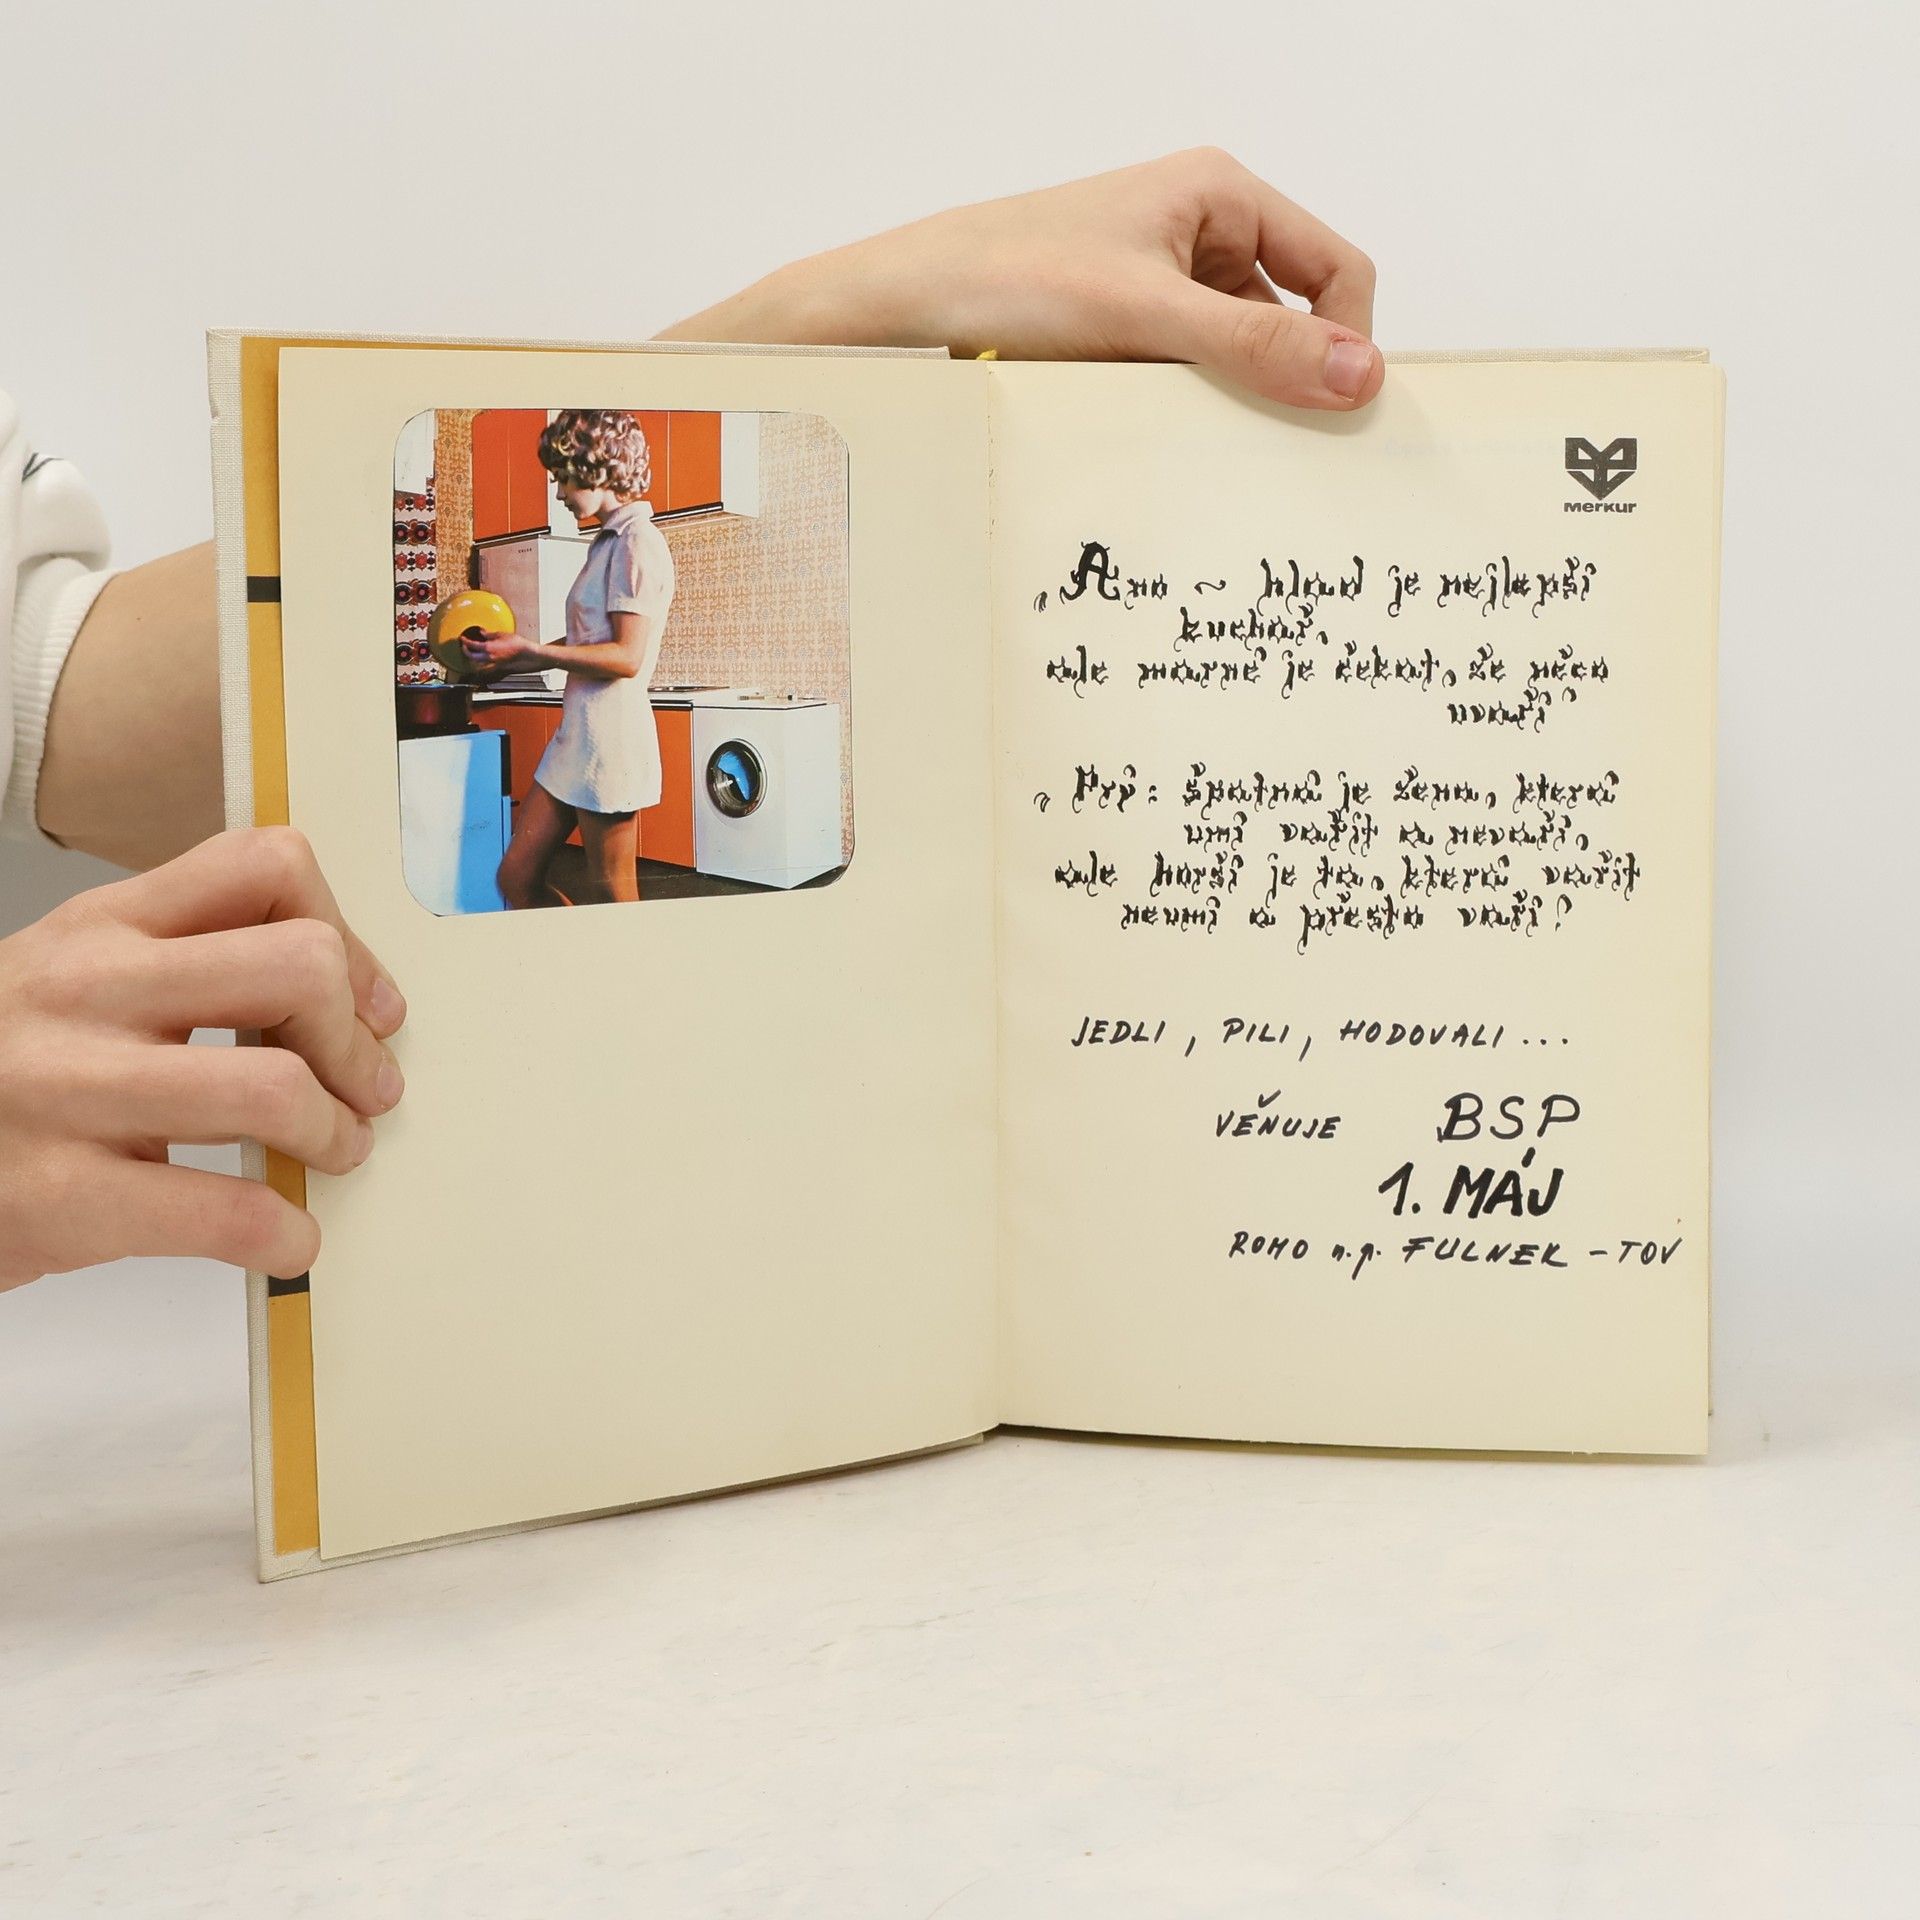 Merkur
„Ano ~ hlad je nejlepší
kuchař,
ale marné je čekat, že něco
uvaří“
„Prý: Špatná je žena, která
umí vařit a nevaří,
ale horší je ta, která vařit
neumí a přesto vaří!
JEDLI, PILI, HODOVALI...
VĚNUJE BSP
1. MÁJ
ROMO n.p. FULNEK - TOV